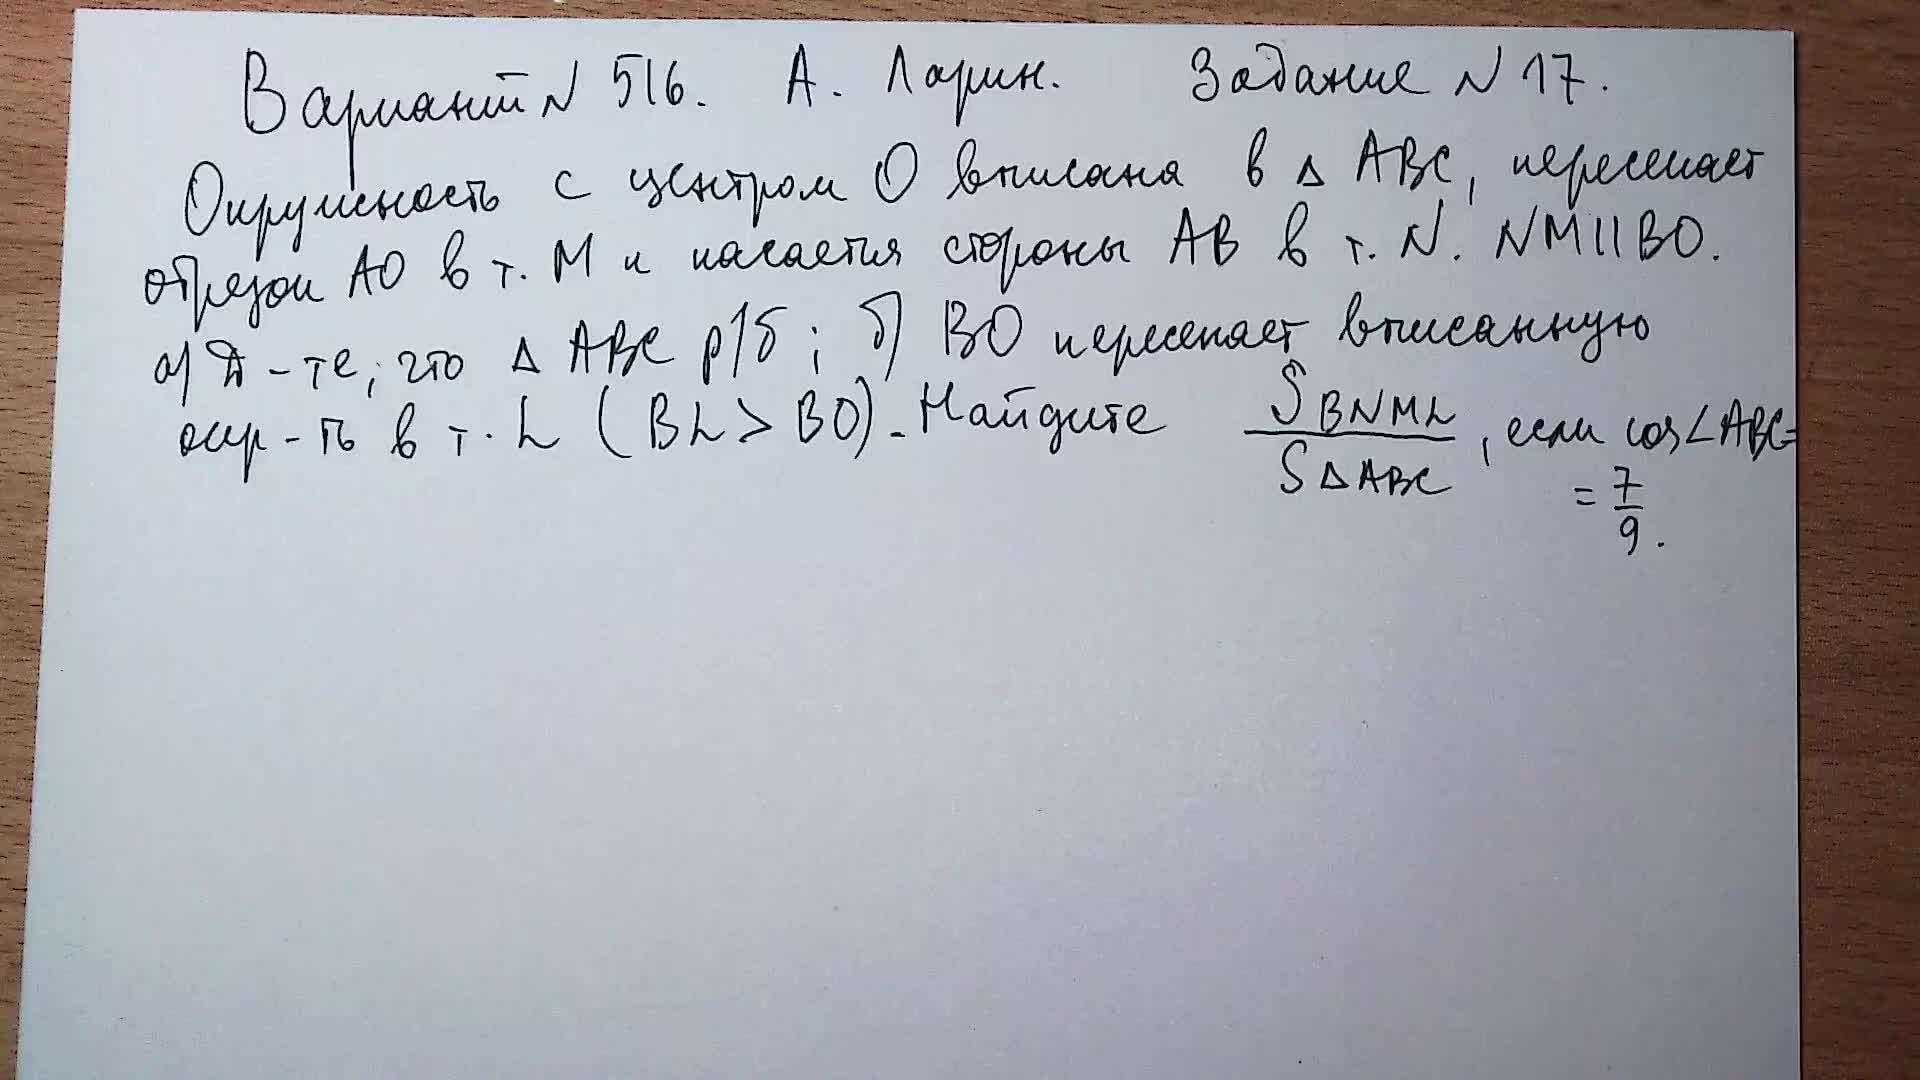 Вариант N 516. А. Ларин. Задание N 17.
Окружность с центром O вписана в △ ABC, пересекает
отрезок AO в т. M и касается стороны AB в т. N. NM||BO.
а) Д-те, что △ ABC р/б; б) BO пересекает вписанную
окр-ть в т. L (BL > BO). Найдите S BNML / S△ABC, если cos∠ABC=
= 7/9.